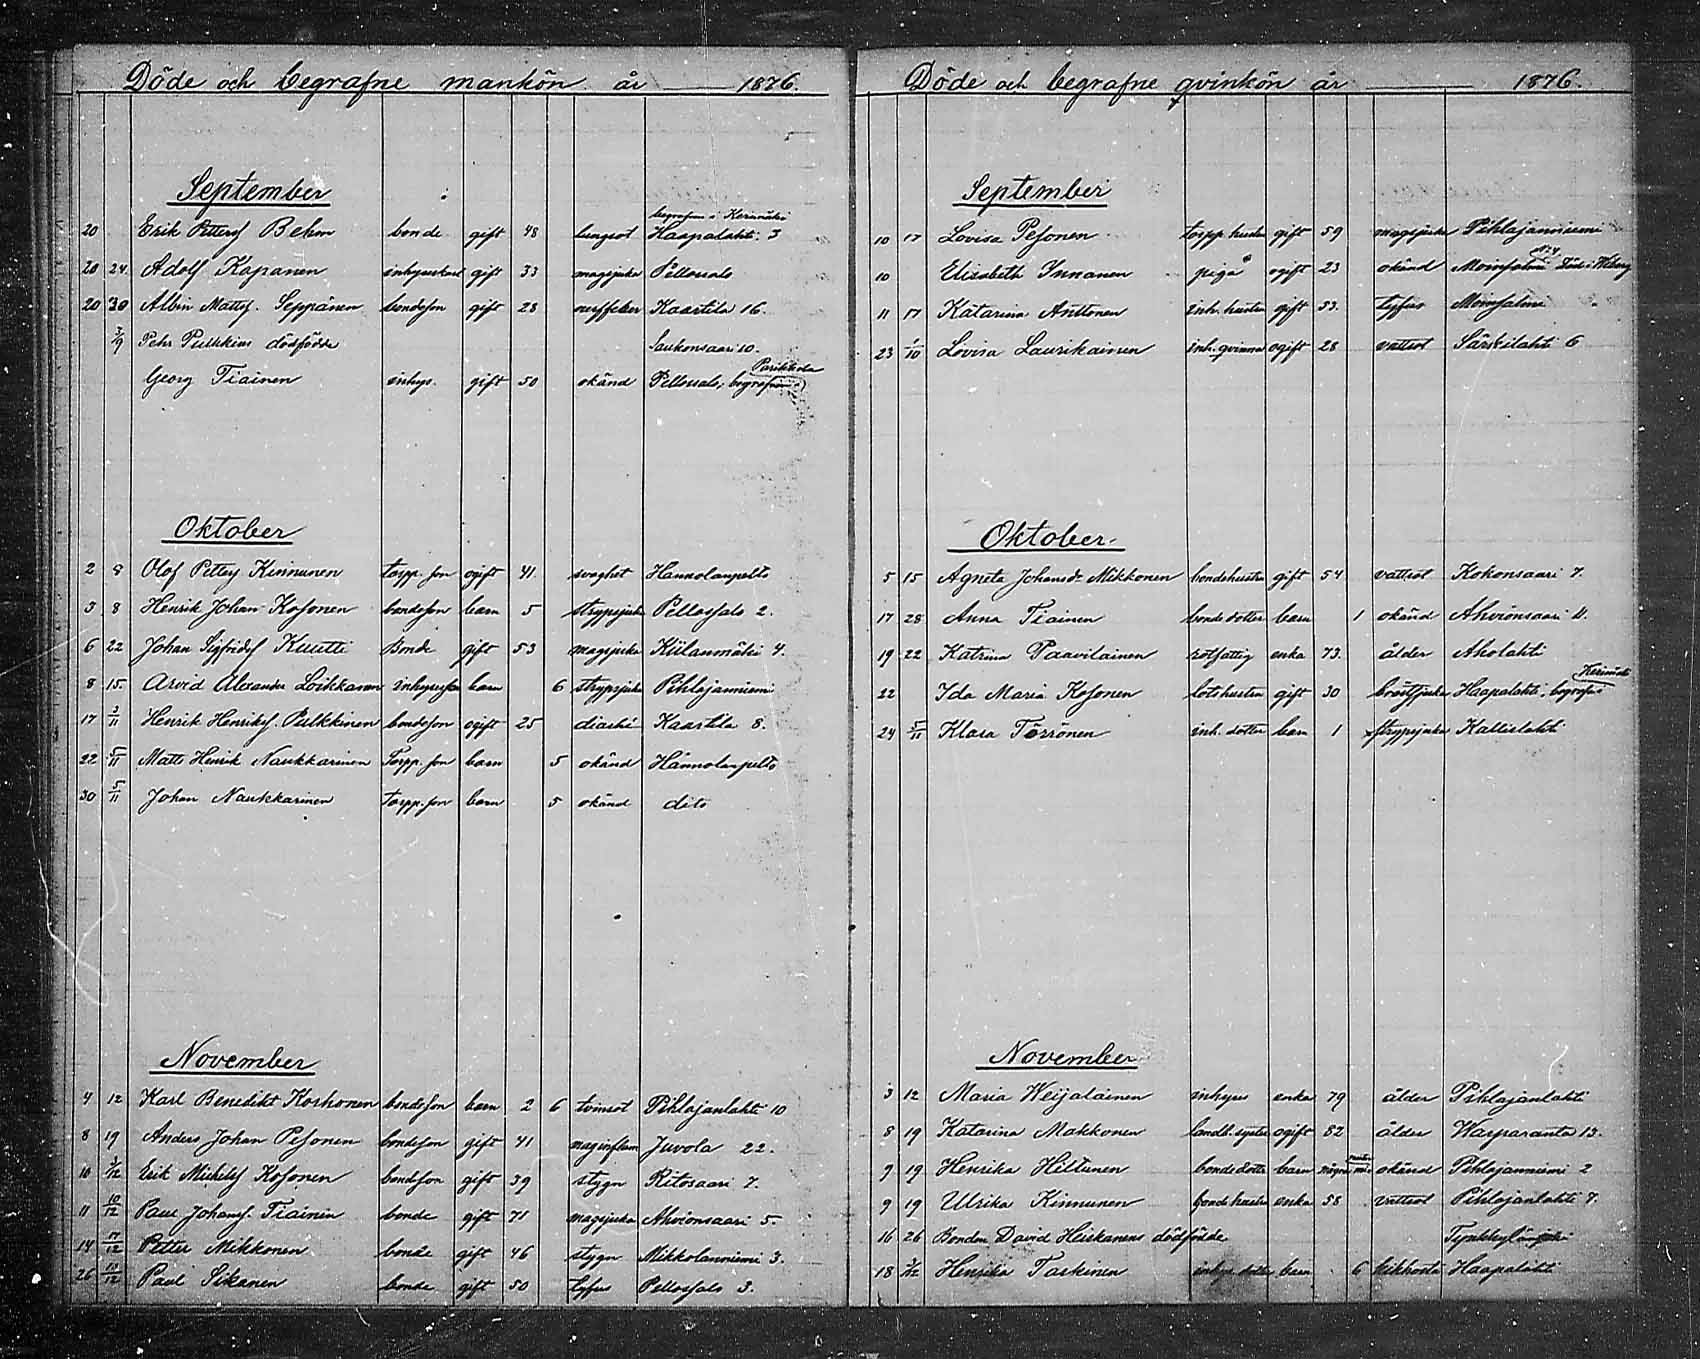 Döde och begrafne mankön år 1876.
September
begrafen i Kerimäki
20 Erik Petterss Behm bonde gift 48 lungsot Haapalahti 3
20 24 Adolf Kapanen inhyseskarl gift 33 magsjuka Pellossalo
20 30 Albin Mattss. Seppänen bondeson gift 28 nerffeber Kaartila 16.
3/9 Pehr Pulkkins dödfödde Laukonsaari 10.
Parikkala
Georg Tiainen inhys. gift 50 okänd Pellossalo, begrafven
Oktober
2 8 Olof Petterss Kinnunen torpp. son ogift 41. svaghet Hannolanpelto
3 8 Henrik Johan Kosonen bondeson barn 5 strypsjuka Pellossalo 2.
6 22 Johan Sigfridss Kuutti Bonde gift 53 magsjuka Kiilanmäki 4.
8 15. Arvid Alexander Loikkanen inhysesson barn 6 strypsjuka Pihlajaniemi
17 3/11 Henrik Henrikss. Pulkkinen bondeson ogift 25 diarhé Kaartila 8.
22 5/11 Matts Henrik Naukkarinen Torpp. son barn 5 okänd Hannolanpelto
30 5/11 Johan Naukkarinen torpp. son barn 5 okänd dito
November
4 12 Karl Benedikt Korhonen bondeson barn 2 6 tvinsot Pihlajanlahti 10
8 19 Anders Johan Pesonen bondeson gift 41 maginflam Juvola 22.
10 3/12 Erik Mickelss Kosonen bondeson gift 39 stygn Ritosaari 7.
11 10/12 Paul Johanss. Tiainen bonde gift 71 magsjuka Ahvionsaari 5.
14 17/12 Petter Mikkonen bonde gift 46 stygn Mikkolanniemi 3.
26 Paul Sikanen bonde gift 50 tyfus Pellossalo 3.
Döde och begrafne qvinkön år 1876.
September
10 17 Lovisa Pesonen torpp hustru gift 59 magsjuka Pihlajaniemi
10 Elisabeth Innanen piga ogift 23 okänd Moinsalmi Död i Wiborg
11 17 Katarina Anttonen inh. hustru gift 53. tyfus Moinsalmi
23 1/10 Lovisa Laurikainen inh. qvinna ogift 28 vattsot Särkilahti 6
Oktober
5 15 Agneta Johansd. Mikkonen bondehustru gift 54 vattsot Kokonsaari 7.
17 28 Anna Tiainen bonde dotter barn 1 okänd Ahvionsaari 11.
19 22 Katrina Paavilainen rotfattig enka 73. ålder Aholahti
Kerimäki
22 Ida Maria Kosonen lots hustru gift 30 bröstsjuka Haapalahti, begrafven
24 5/11 Klara Törrönen inh. dotter barn 1 strypsjuka Kallislahti
November
3 12 Maria Weijalainen inhyses enka 79 ålder Pihlajanlahti
8 19 Katarina Makkonen landb. syster ogift 82 ålder Warparanta 13.
9 19 Henrika Hiltunen bonde dotter barn några okänd Pihlajaniemi 2
9 19 Ulrika Kinnunen bonde hustru enka 58 vattsot Pihlajanlahti 7.
16 26 Bonden David Heiskanens dödfödde
18 3/12 Henrika Tarkinen inhys. dotter barn 6 kikhosta Haapalahti